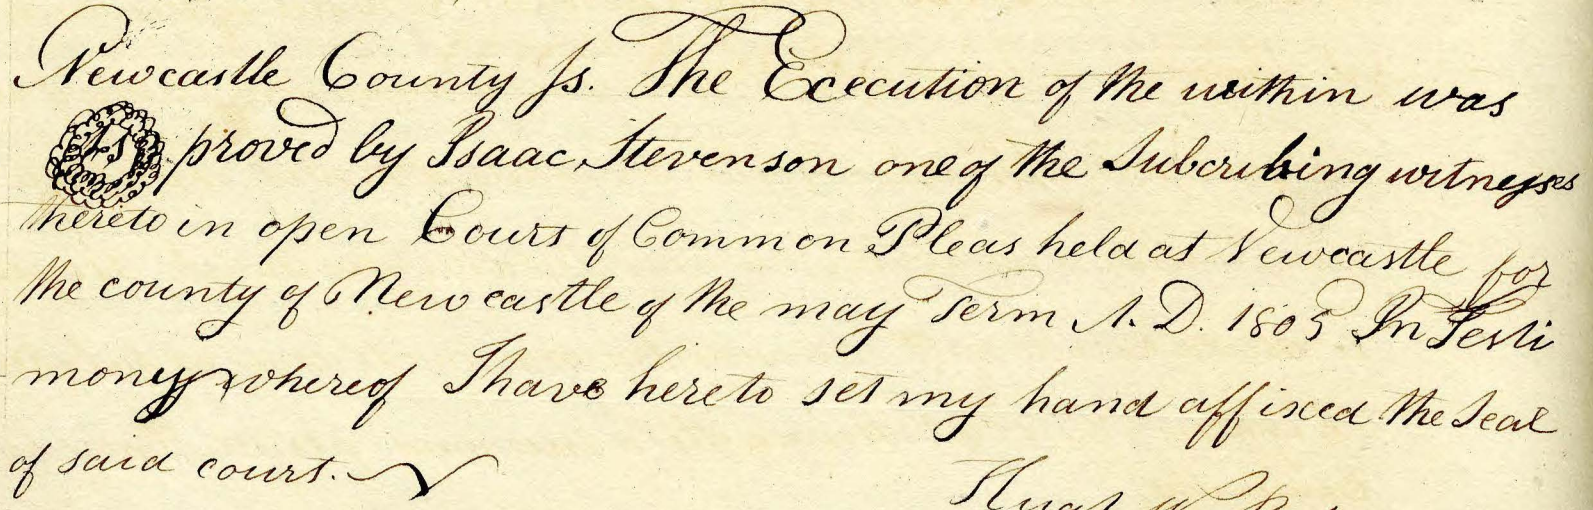 Newcastle County ss. The Execution of the within was
LS proved by Isaac Stevenson one of the Subcribing witnesses
thereto in open Court of Common Pleas held at Newcastle for
the county of Newcastle of the may Term A.D. 1805 In Testi
mony whereof I have hereto set my hand affixed the Seal
of said court.